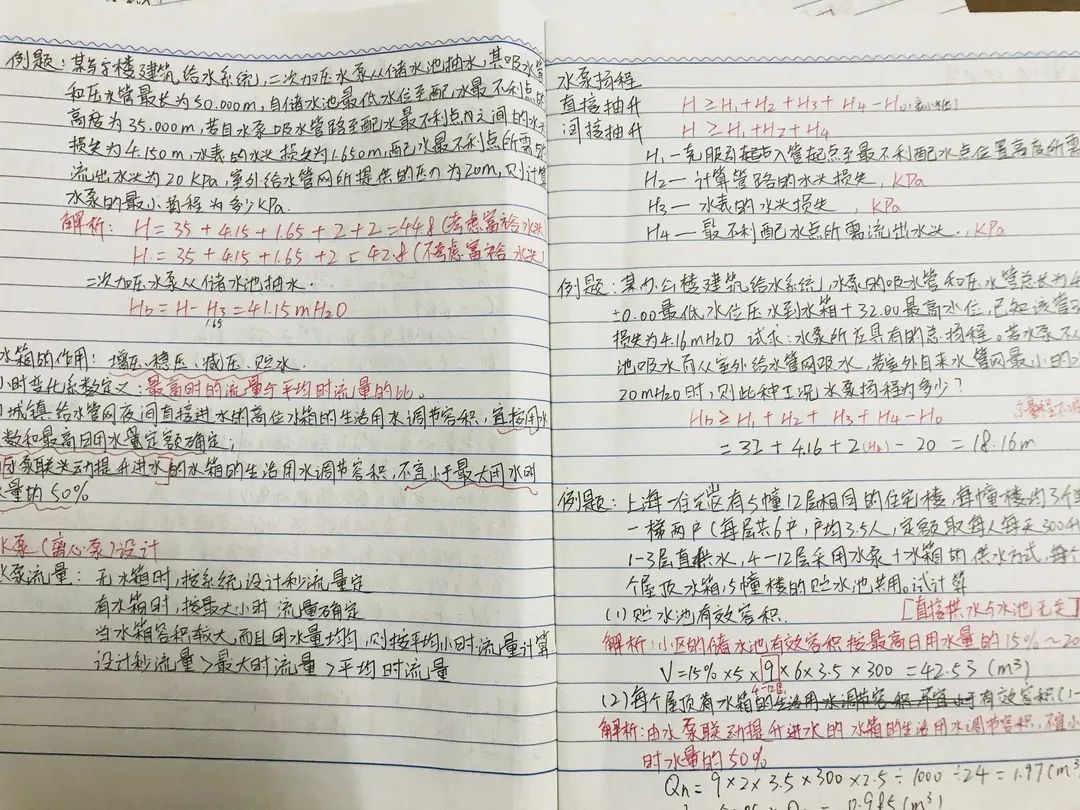 例题：某写字楼建筑给水系统，二次加压水泵从储水池抽水，其吸水管
和压水管最长为50.000m，自储水池最低水位至配水最不利点的
高度为35.000m，若自水泵吸水管路至配水最不利点内之间的水头
损失为4.150m，水表的水头损失为1.650m，配水最不利点所需
流出水头为20KPa，室外给水管网所提供的压力为20m，则计算
水泵的最小扬程为多少KPa.
解析： H = 35 + 4.15 + 1.65 + 2 + 2 = 44.8 (考虑富裕水头
H = 35 + 4.15 + 1.65 + 2 = 42.8 (不考虑富裕水头)
二次加压水泵从储水池抽水.
Hb = H - H3 = 41.15mH2O
1.65
水箱的作用：增压、稳压、减压、贮水.
小时变化系数定义：最高时的流量与平均时流量的比。
城镇给水管网夜间直接进水的高位水箱的生活用水调节容积，宜按用水
数和最高日用水量定额确定；
泵联动提升进水的水箱的生活用水调节容积，不宜小于最大用水时
量的50%
水泵(离心泵)设计
水泵流量：无水箱时，按系统设计秒流量定
有水箱时，按最大小时流量确定
当水箱容积较大，而且用水量均匀，则按平均小时流量计算
设计秒流量>最大时流量>平均时流量
水泵扬程
直接抽升 H ≥ H1 + H2 + H3 + H4 - H0
间接抽升 H ≥ H1 + H2 + H4
H1—克服引入管起点至最不利配水点位置高度所需
H2—计算管路的水头损失，KPa
H3—水表的水头损失，KPa
H4—最不利配水点所需流出水头.，KPa
例题：某办公楼建筑给水系统，水泵的吸水管和压水管总长为4
±0.00最低水位压水到水箱+32.00最高水位，已知该管
损失为4.16mH2O 试求：水泵所应具有的总扬程。若水泵不从
池吸水而从室外给水管网吸水，若室外自来水管网最小的
20mH2O时，则此种工况水泵扬程为多少？
Hb ≥ H1 + H2 + H3 + H4 - H0
= 32 + 4.16 + 2(H4) - 20 = 18.16m
例题：上海一住宅区有5幢12层相同的住宅楼，每幢楼均3个
一梯两户(每层共6户，户均3.5人，定额取每人每天300升
1-3层直供水，4-12层采用水泵+水箱的供水方式，每个
个屋顶水箱，5幢楼的贮水池共用。试计算
(1)贮水池有效容积. [直接供水与水池无关]
解析：小区的储水池有效容积按最高日用水量的15%~20
V = 15% × 5 × 9 × 6 × 3.5 × 300 = 42.53 (m³)
4-12层
(2)每个屋顶有水箱的生活用水调节容积 不宜小于有效容积(1-
解析：由水泵联动提升进水的水箱的生活用水调节容积，不宜小
时水量的50%
Qn = 9×2×3.5×300×2.5÷1000÷24 = 1.97(m³
= 0.985(m³)